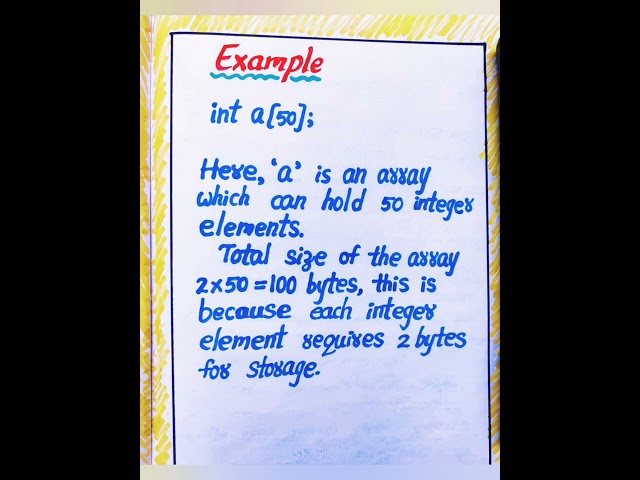 Example
int a[50];
Here, 'a' is an array
which can hold 50 integer
elements.
Total size of the array
2×50=100 bytes, this is
because each integer
element requires 2 bytes
for storage.